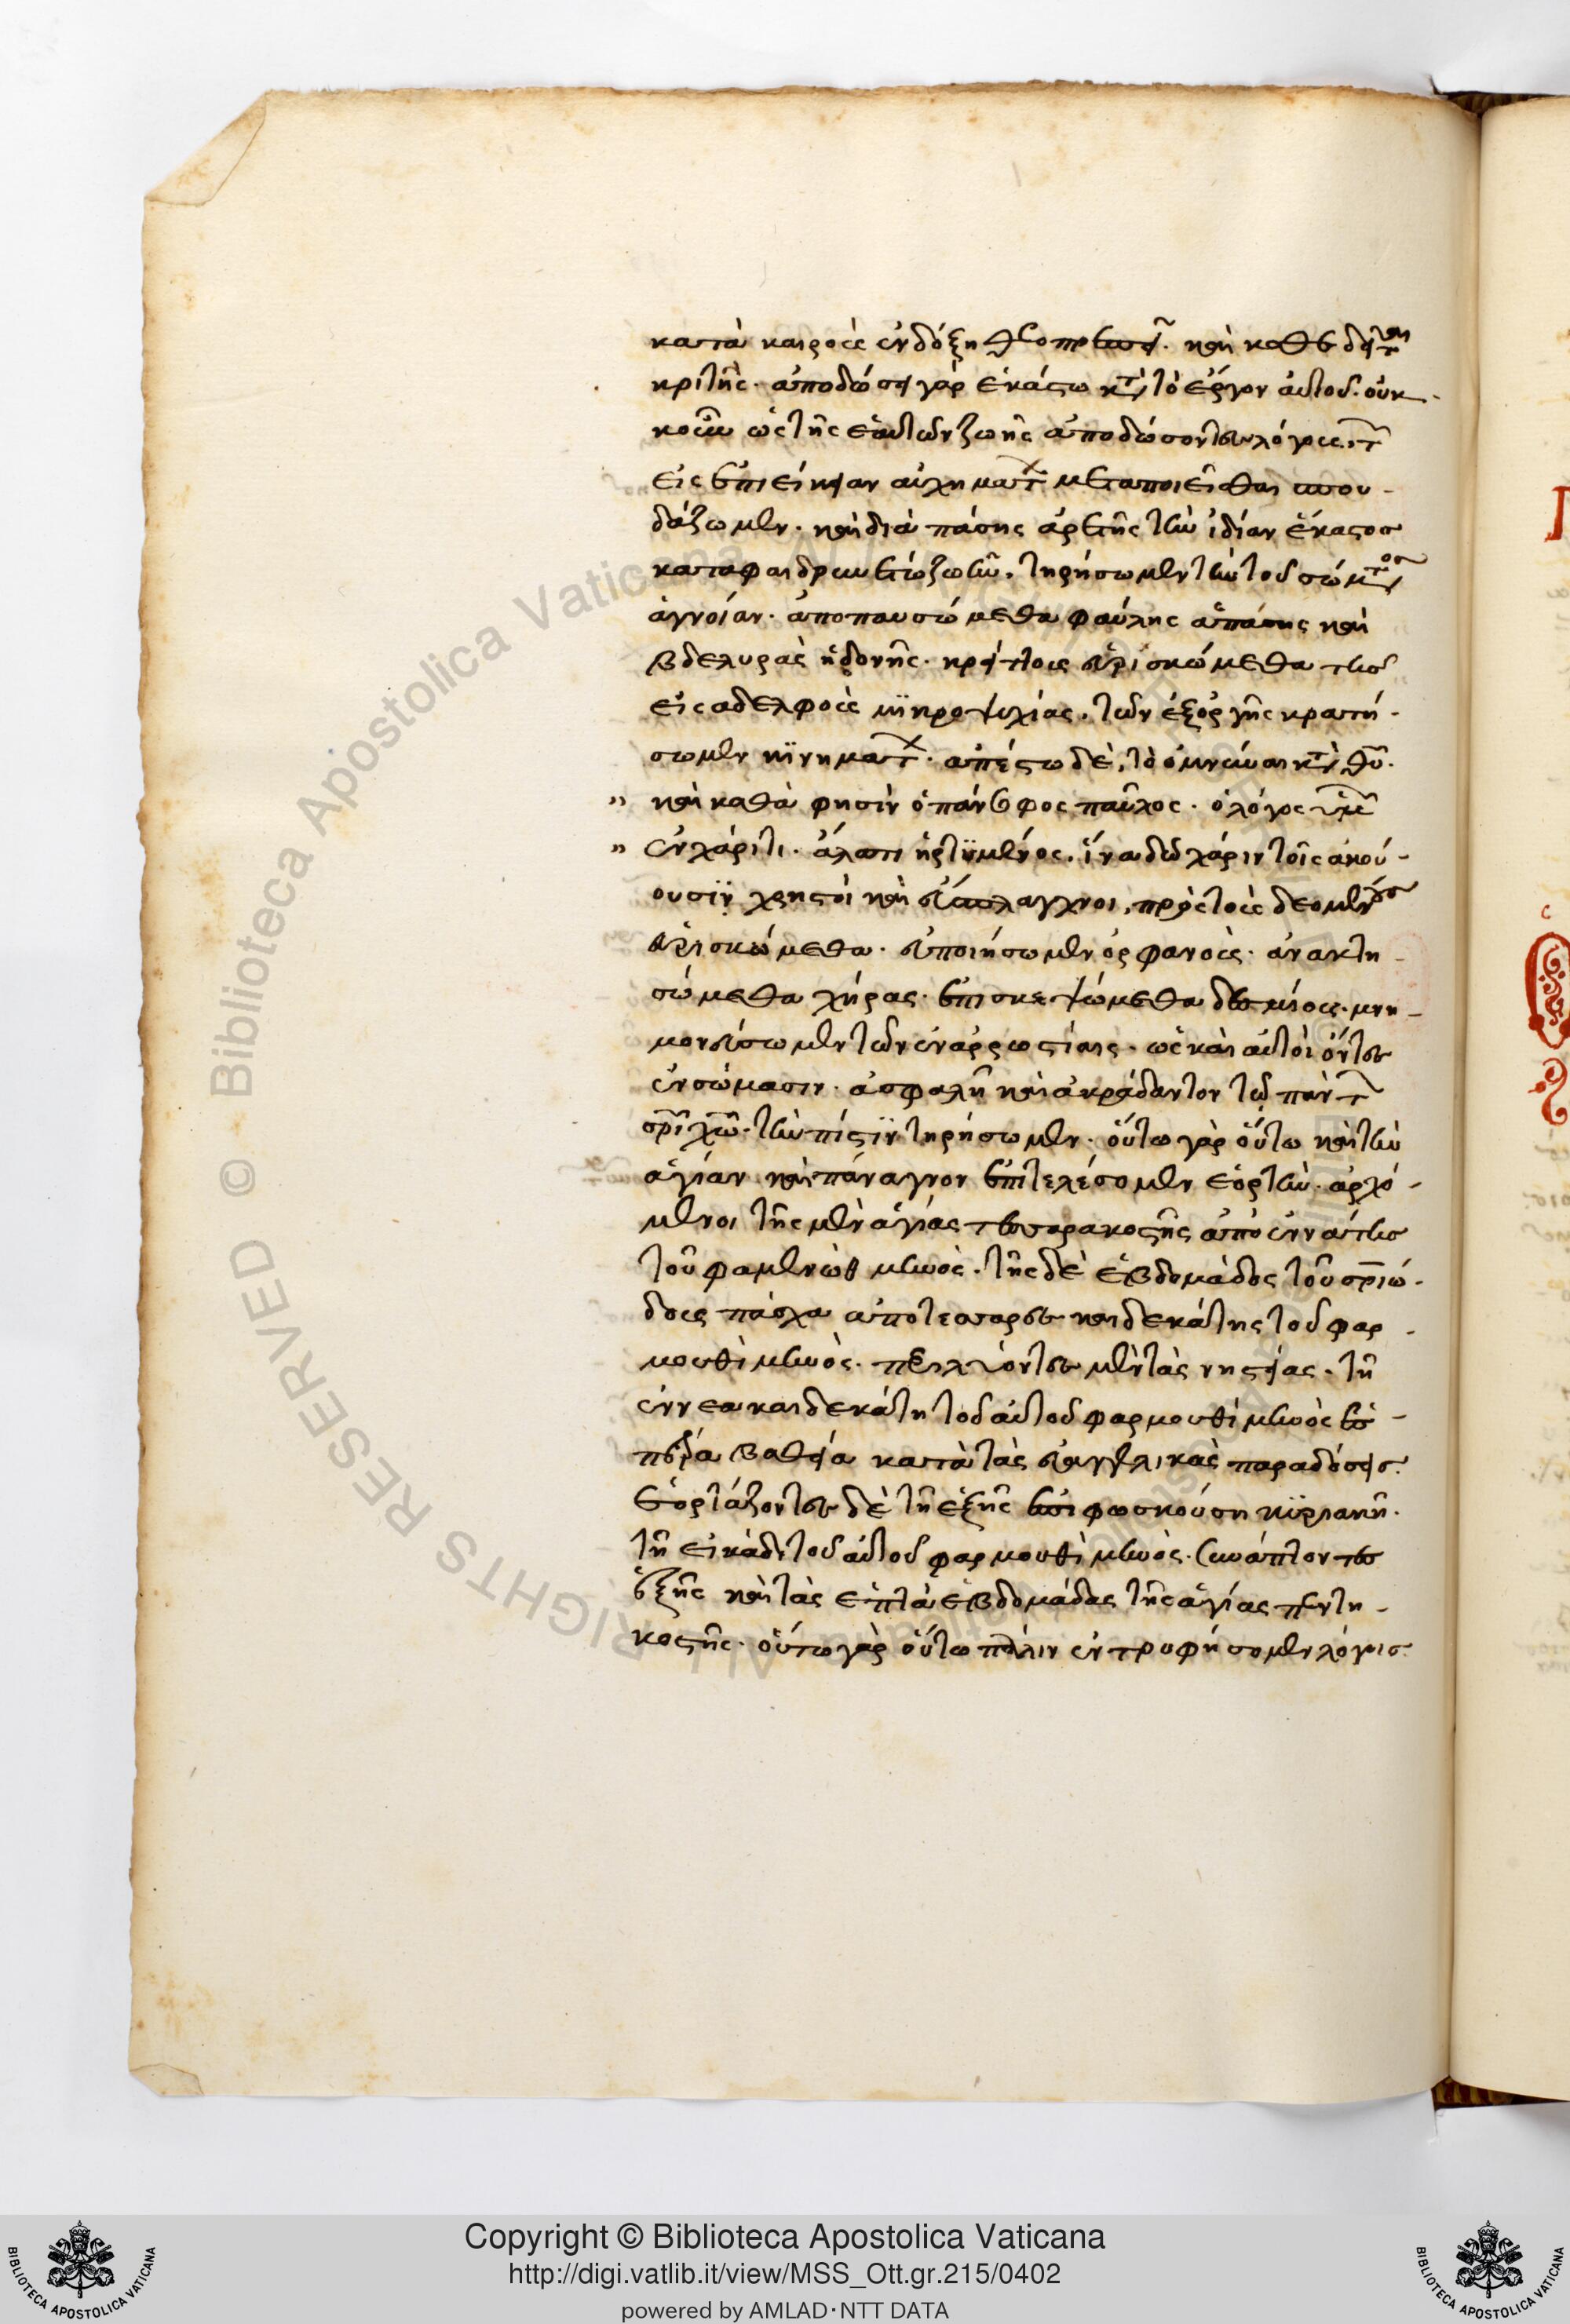 κατὰ καιροὺς ἐν δόξῃ θεοπρεπεῖ. καὶ καθεδεῖται
κριτὴς. ἀποδώσει γὰρ ἑκάστω κατὰ τὸ ἔργον αὐτοῦ. οὐκ
κοῦν ὡς τῆς ἑαυτῶν ζωῆς ἀποδώσοντες λόγους,
εἰς ἐπιείκειαν αὐχήματα μεταποιεῖσθαι σπου-
δάζωμεν. καὶ διὰ πάσης ἀρετῆς τὴν ἰδίαν ἕκαστος
καταφαιδρύνων ζωὴν. τηρήσωμεν τὴν τοῦ σώματος
ἁγνοίαν. ἀποπαυσώμεθα φαύλης ἁπάσης καὶ
βδελυρᾶς ἡδονῆς. κρείττους εὑρισκώμεθα τῆς
εἰς ἀδελφοὺς μικροψυχίας. τῶν ἐξ ὀργῆς κρατή-
σωμεν κινημάτων. ἀπέστω δὲ, τὸ ὀμνύναι κατὰ θεοῦ.
καὶ καθὰ φησὶν ὁ πάνσοφος παῦλος. ὁ λόγος ὑμῶν
ἐν χάριτι. ἅλατι ἠρτυμένος. ἵνα δῶ χάριν τοῖς ἀκού-
ουσιν χρηστοὶ καὶ εὔσπλαγχνοι, πρὸς τοὺς δεομένους
εὑρισκώμεθα. εὐποιήσωμεν ὀρφανοὺς. ἀνακτη-
σώμεθα χήρας. ἐπισκεψώμεθα δεσμίους. μνη-
μονεύσωμεν τῶν ἐν ἀρρωστίαις. ὡς καὶ αὐτοὶ ὄντες
ἐν σώμασιν. ἀσφαλῆ καὶ ἀκράδαντον τῶ πάντων
σρι χω. τὴν πίστιν τηρήσωμεν. οὕτω γὰρ οὕτω καὶ τὴν
ἁγίαν καὶ πάναγνον ἐπιτελέσομεν ἑορτὴν. ἀρχό-
μενοι τῆς μὲν ἁγίας τεσσαρακοστῆς ἀπὸ ἐννάτης
τοῦ φαμενὼθ μηνὸς. τῆς δὲ ἑβδομάδος τοῦ σριώ-
δους πάσχα ἀπὸ τεσσαρες καιδεκάτης τοῦ φαρ-
μουθὶ μηνὸς. περιλύοντες μὲν τὰς νηστείας. τῇ
ἐννεακαιδεκάτη τοῦ αὐτοῦ φαρμουθὶ μηνὸς ἑσ-
πέρα βαθεία κατὰ τὰς εὐαγγελικὰς παραδόσεις.
ἑορτάζοντες δὲ τῇ ἑξῆς ἐπιφωσκούση κυριακῇ.
τῇ εἰκάδι τοῦ αὐτοῦ φαρμουθὶ μηνὸς. συνάπτοντες
ἑξῆς καὶ τὰς ἑπτὰ ἑβδομάδας τῆς ἁγίας πεντη-
κοστῆς. οὕτω γὰρ οὕτω πάλιν ἐντρυφήσομεν λόγοις.
Copyright © Biblioteca Apostolica Vaticana
http://digi.vatlib.it/view/MSS_Ott.gr.215/0402
powered by AMLAD·NTT DATA